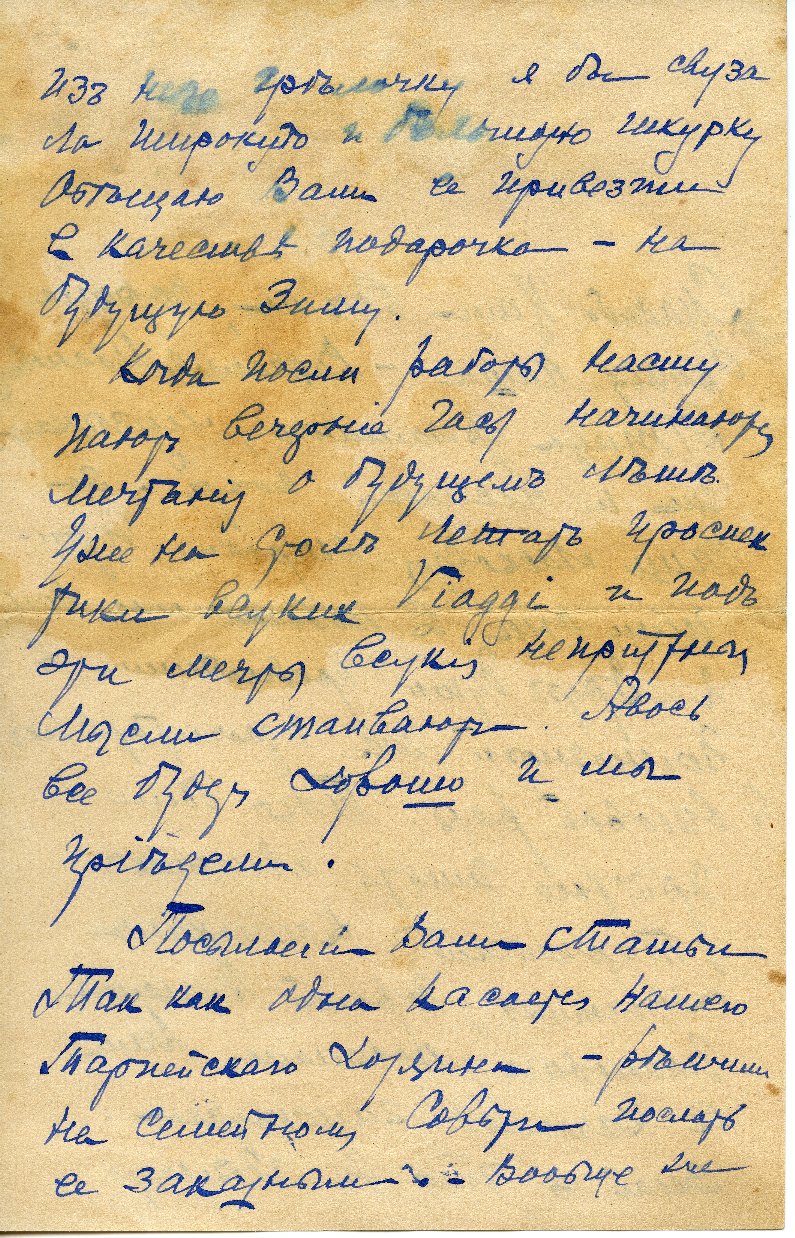 Изъ него грѣлочку я бы связа
ла широкую и большую шкурку
Обѣщаю Вамъ ее привезти
въ качествѣ подарочка – на
будущую Зиму.
Когда послѣ работы насту
паютъ вечернiе часы начинаются
мечтанiя о будущемъ лѣтѣ.
Уже на столѣ лежатъ проспек
тики всякихъ Viaggi и подъ
эти мечты всякiя непрiятныя
мысли стаиваютъ. Авось
все будетъ хорошо и мы
прiѣдемъ.
Посылаемъ Вамъ статьи
Такъ какъ одна касается нашего
Тарпейскаго – рѣшили
на семейномъ Совѣтѣ послать
ее заказнымъ – Вообще же